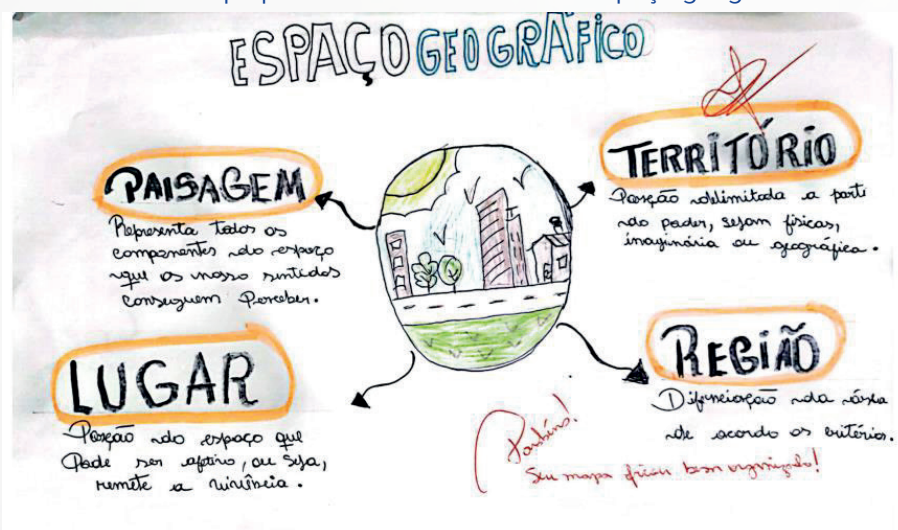 ESPAÇO GEOGRÁFICO
PAISAGEM
Representa todos os
componentes do espaço
que os nosso sentidos
conseguem Perceber.
TERRITÓRIO
Porção delimitada a parti
do poder, sejam físicas,
imaginária ou geográfica.
LUGAR
Porção do espaço que
Pode ser afetivo, ou seja,
remete a vivência.
REGIÃO
Difenciação da área
de acordo os critérios.
Parabéns!
Seu mapa ficou bem organizado!